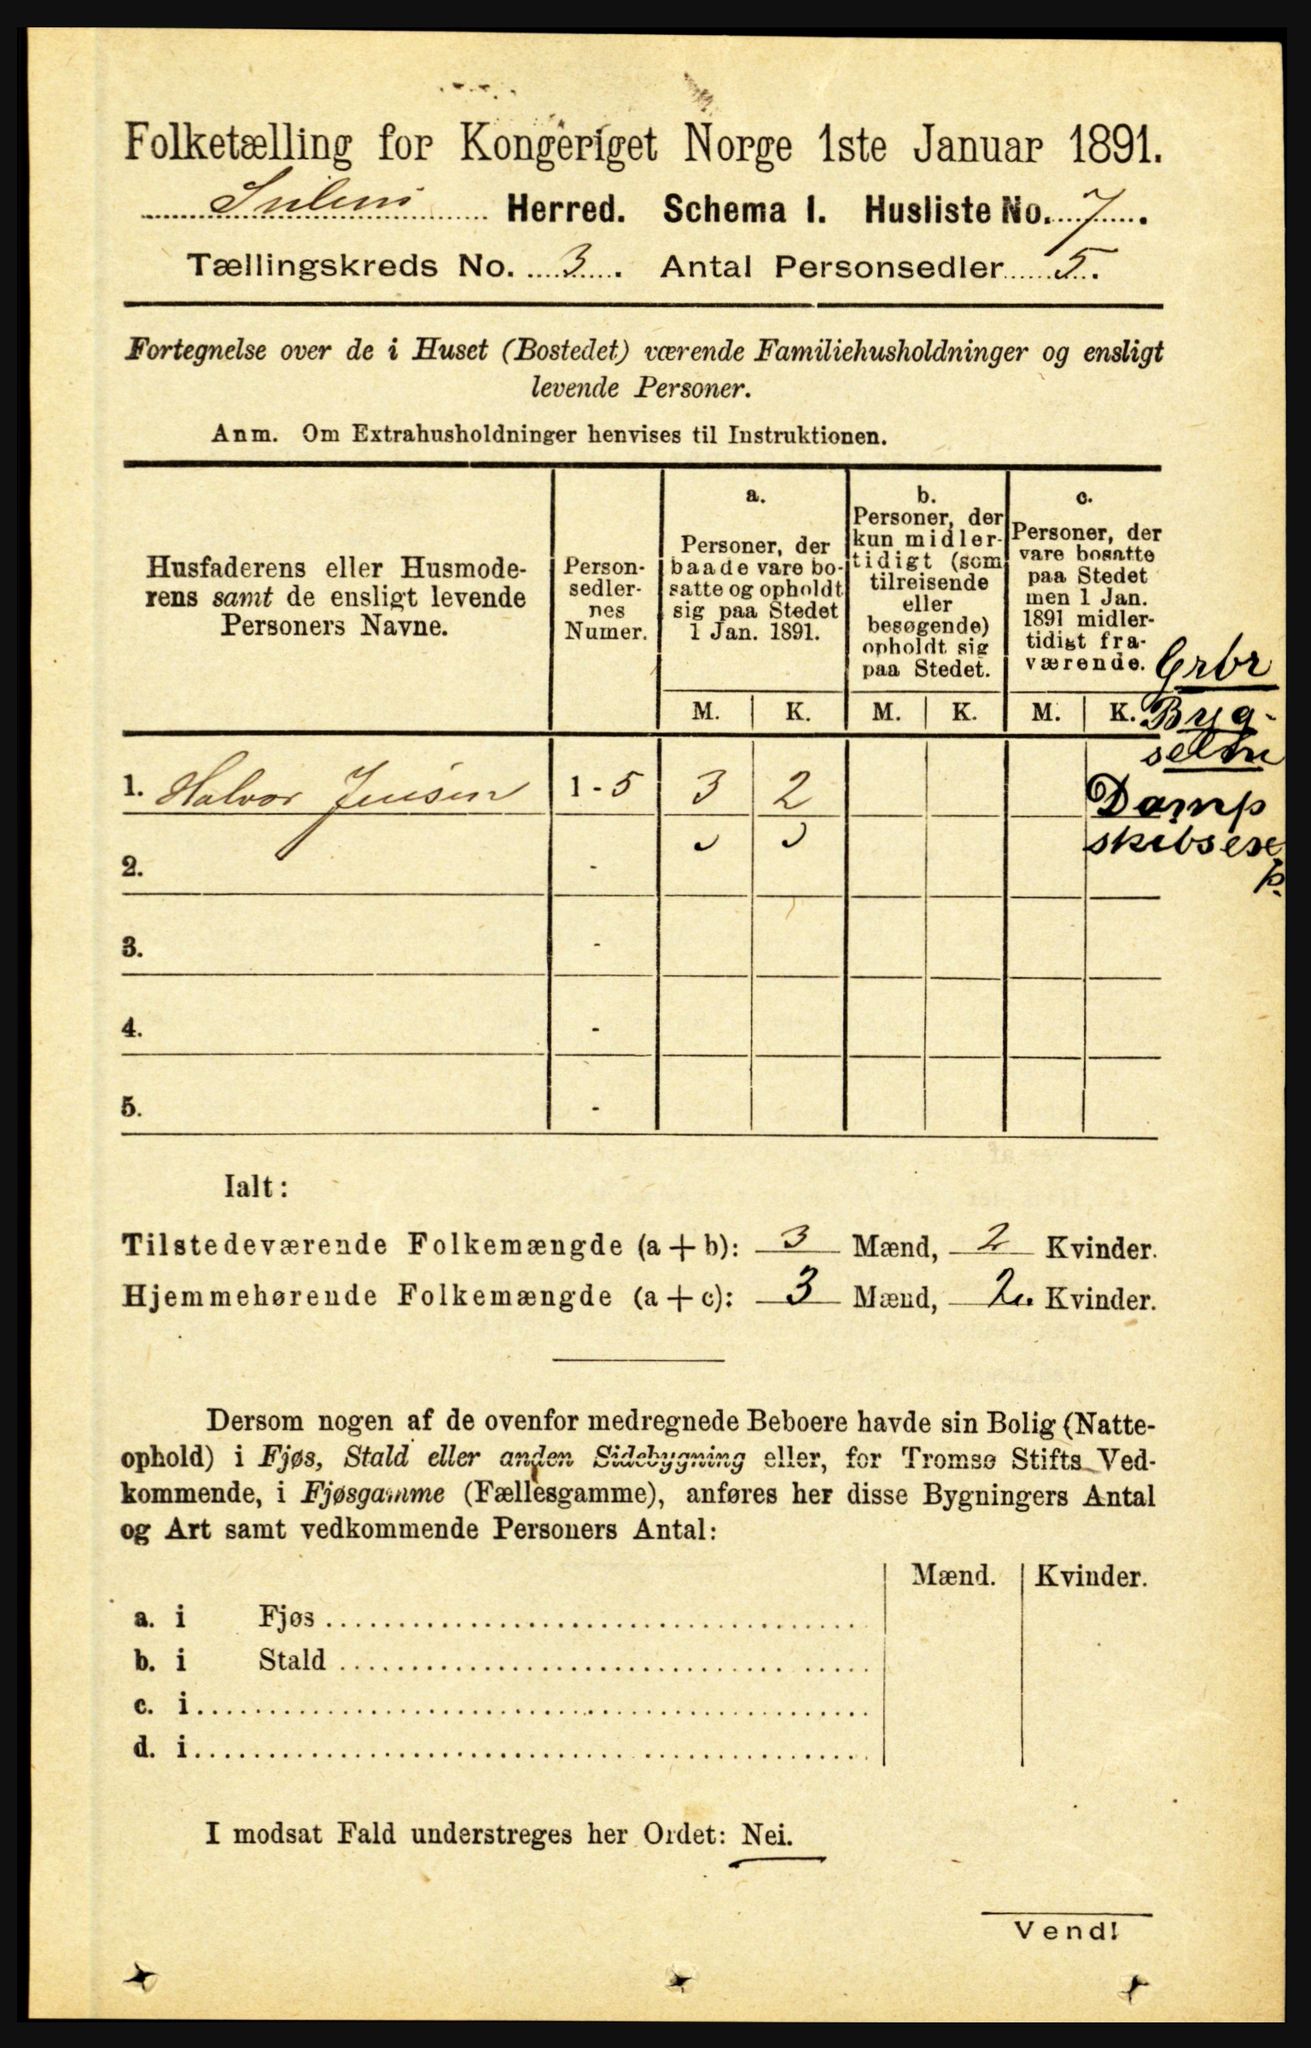 Folketælling for Kongeriget Norge 1ste Januar 1891.
Herred. Schema I. Husliste No. 7.
Tællingskreds No. 3. Antal Personsedler 5.
Fortegnelse over de i Huset (Bostedet) værende Familiehusholdninger og ensligt
levende Personer.
Anm. Om Extrahusholdninger henvises til Instruktionen.
Husfaderens eller Husmode-
rens samt de ensligt levende
Personers Navne.
Person-
sedler-
nes
Numer.
a.
Personer, der
baade vare bo-
satte og opholdt
sig paa Stedet
1 Jan. 1891.
b.
Personer, der
kun midler-
tidigt (som
tilreisende
eller
besøgende)
opholdt sig
paa Stedet.
c.
Personer, der
vare bosatte
paa Stedet
men 1 Jan.
1891 midler-
tidigt fra-
værende.
Grbr
M. K. M. K. M. K.
Byg-
selbr
1. Halvor Jensen 1 - 5 3 2
Damp
skibsexe
p.
2. -
3. -
4. -
5. -
Ialt:
Tilstedeværende Folkemængde (a + b): 3 Mænd, 2 Kvinder.
Hjemmehørende Folkemængde (a + c): 3 Mænd, 2 Kvinder.
Dersom nogen af de ovenfor medregnede Beboere havde sin Bolig (Natte-
ophold) i Fjøs, Stald eller anden Sidebygning eller, for Tromsø Stifts Ved-
kommende, i Fjøsgamme (Fællesgamme), anføres her disse Bygningers Antal
og Art samt vedkommende Personers Antal:
Mænd. Kvinder.
a. i Fjøs
b. i Stald
c. i
d. i
I modsat Fald understreges her Ordet: Nei.
Vend!